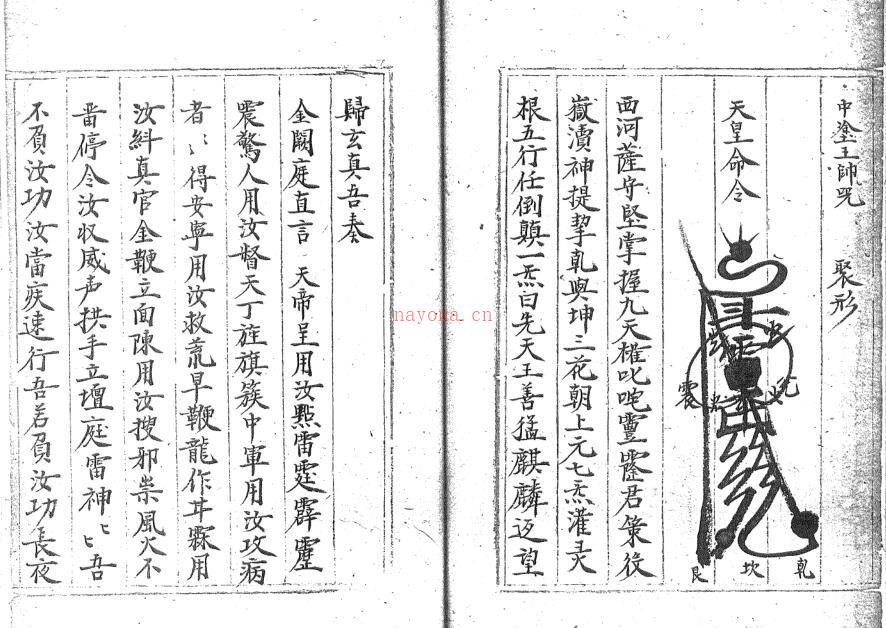 中塗王帥咒　聚形
天皇命令
震
兌
艮
坎
乾
西河薩守堅掌握九天權叱咤靈䨩君策役
嶽瀆神提挈乾與坤三花朝上元七炁灌灵
根五行任倒顛一炁曰先天王善猛麒麟返望
歸玄真吾奏
金闕庭直言　天帝呈用汝㸃雷霆霹靂
震驚人用汝督天丁旌旗簇中軍用汝攻病
者〻得安寧用汝救荒旱鞭龍作甘霖用
汝糾真官金鞭立面陳用汝搜邪祟風火不
畱停令汝収威声拱手立壇庭雷神〻吾
不負汝功汝當疾速行吾若負汝功長夜
nayoka.cn